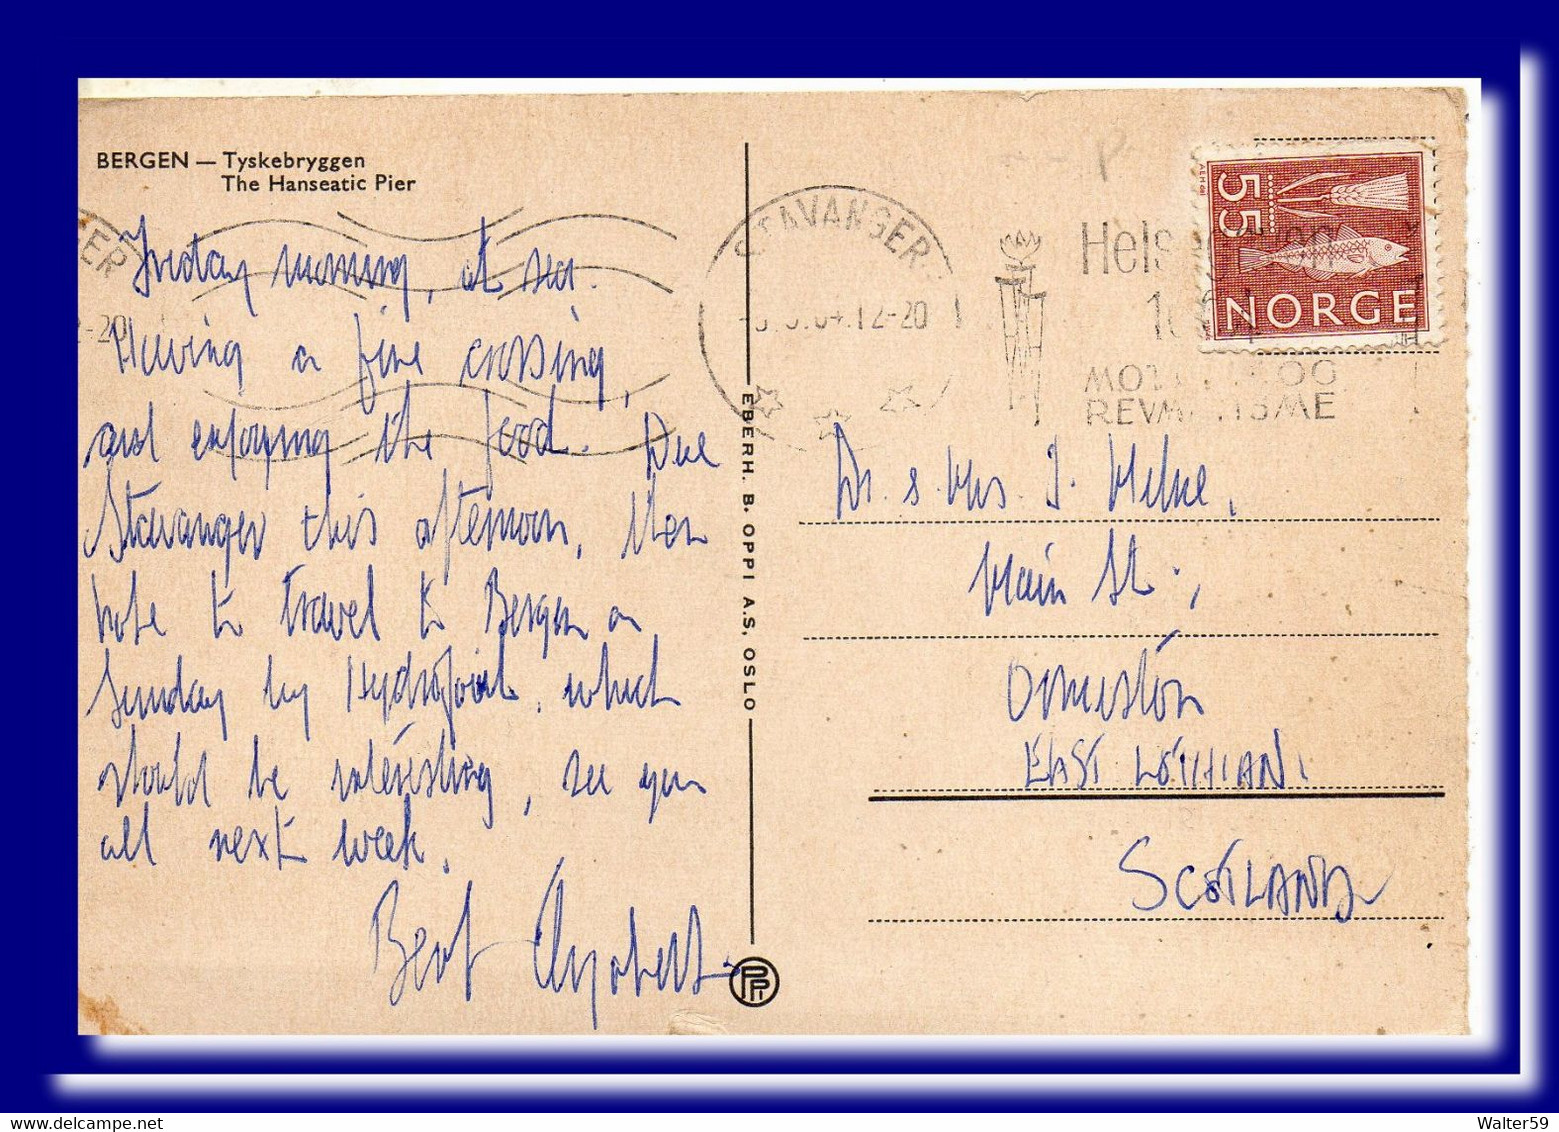 BERGEN — Tyskebryggen
The Hanseatic Pier
Friday morning, at sea.
Having a fine crossing,
and enjoying the food. Due
Stavanger this afternoon, then
hope to travel to Bergen on
Sunday by Hydrofoil, which
should be interesting, see you
all next week.
Bert
EBERH. B. OPPI A.S. OSLO
STAVANGER
12-20
NORGE
55
Dr. & Mrs. J. Milne,
Main St.,
Ormiston
EAST LOTHIAN.
SCOTLAND
Walter59